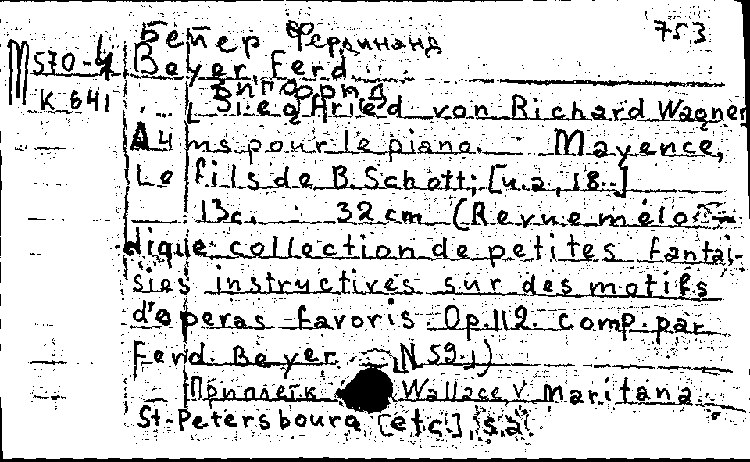 Бейер Фердинанд 753
M 570-4 Beyer, Ferd.
K 641
Siegfried von Richard Wagner
ms pour le piano. Mayence,
Le fils de B. Schott; [u.a, 18..]
13c. 32 cm (Revue mélo-
dique collection de petites fantai-
sies instructives sur des motifs
d'operas favoris. Op. 112. comp. par
Ferd. Beyer. N 59.)
Приплетк Wallace, V Maritana
St-Petersbourg [etc.], s.a.